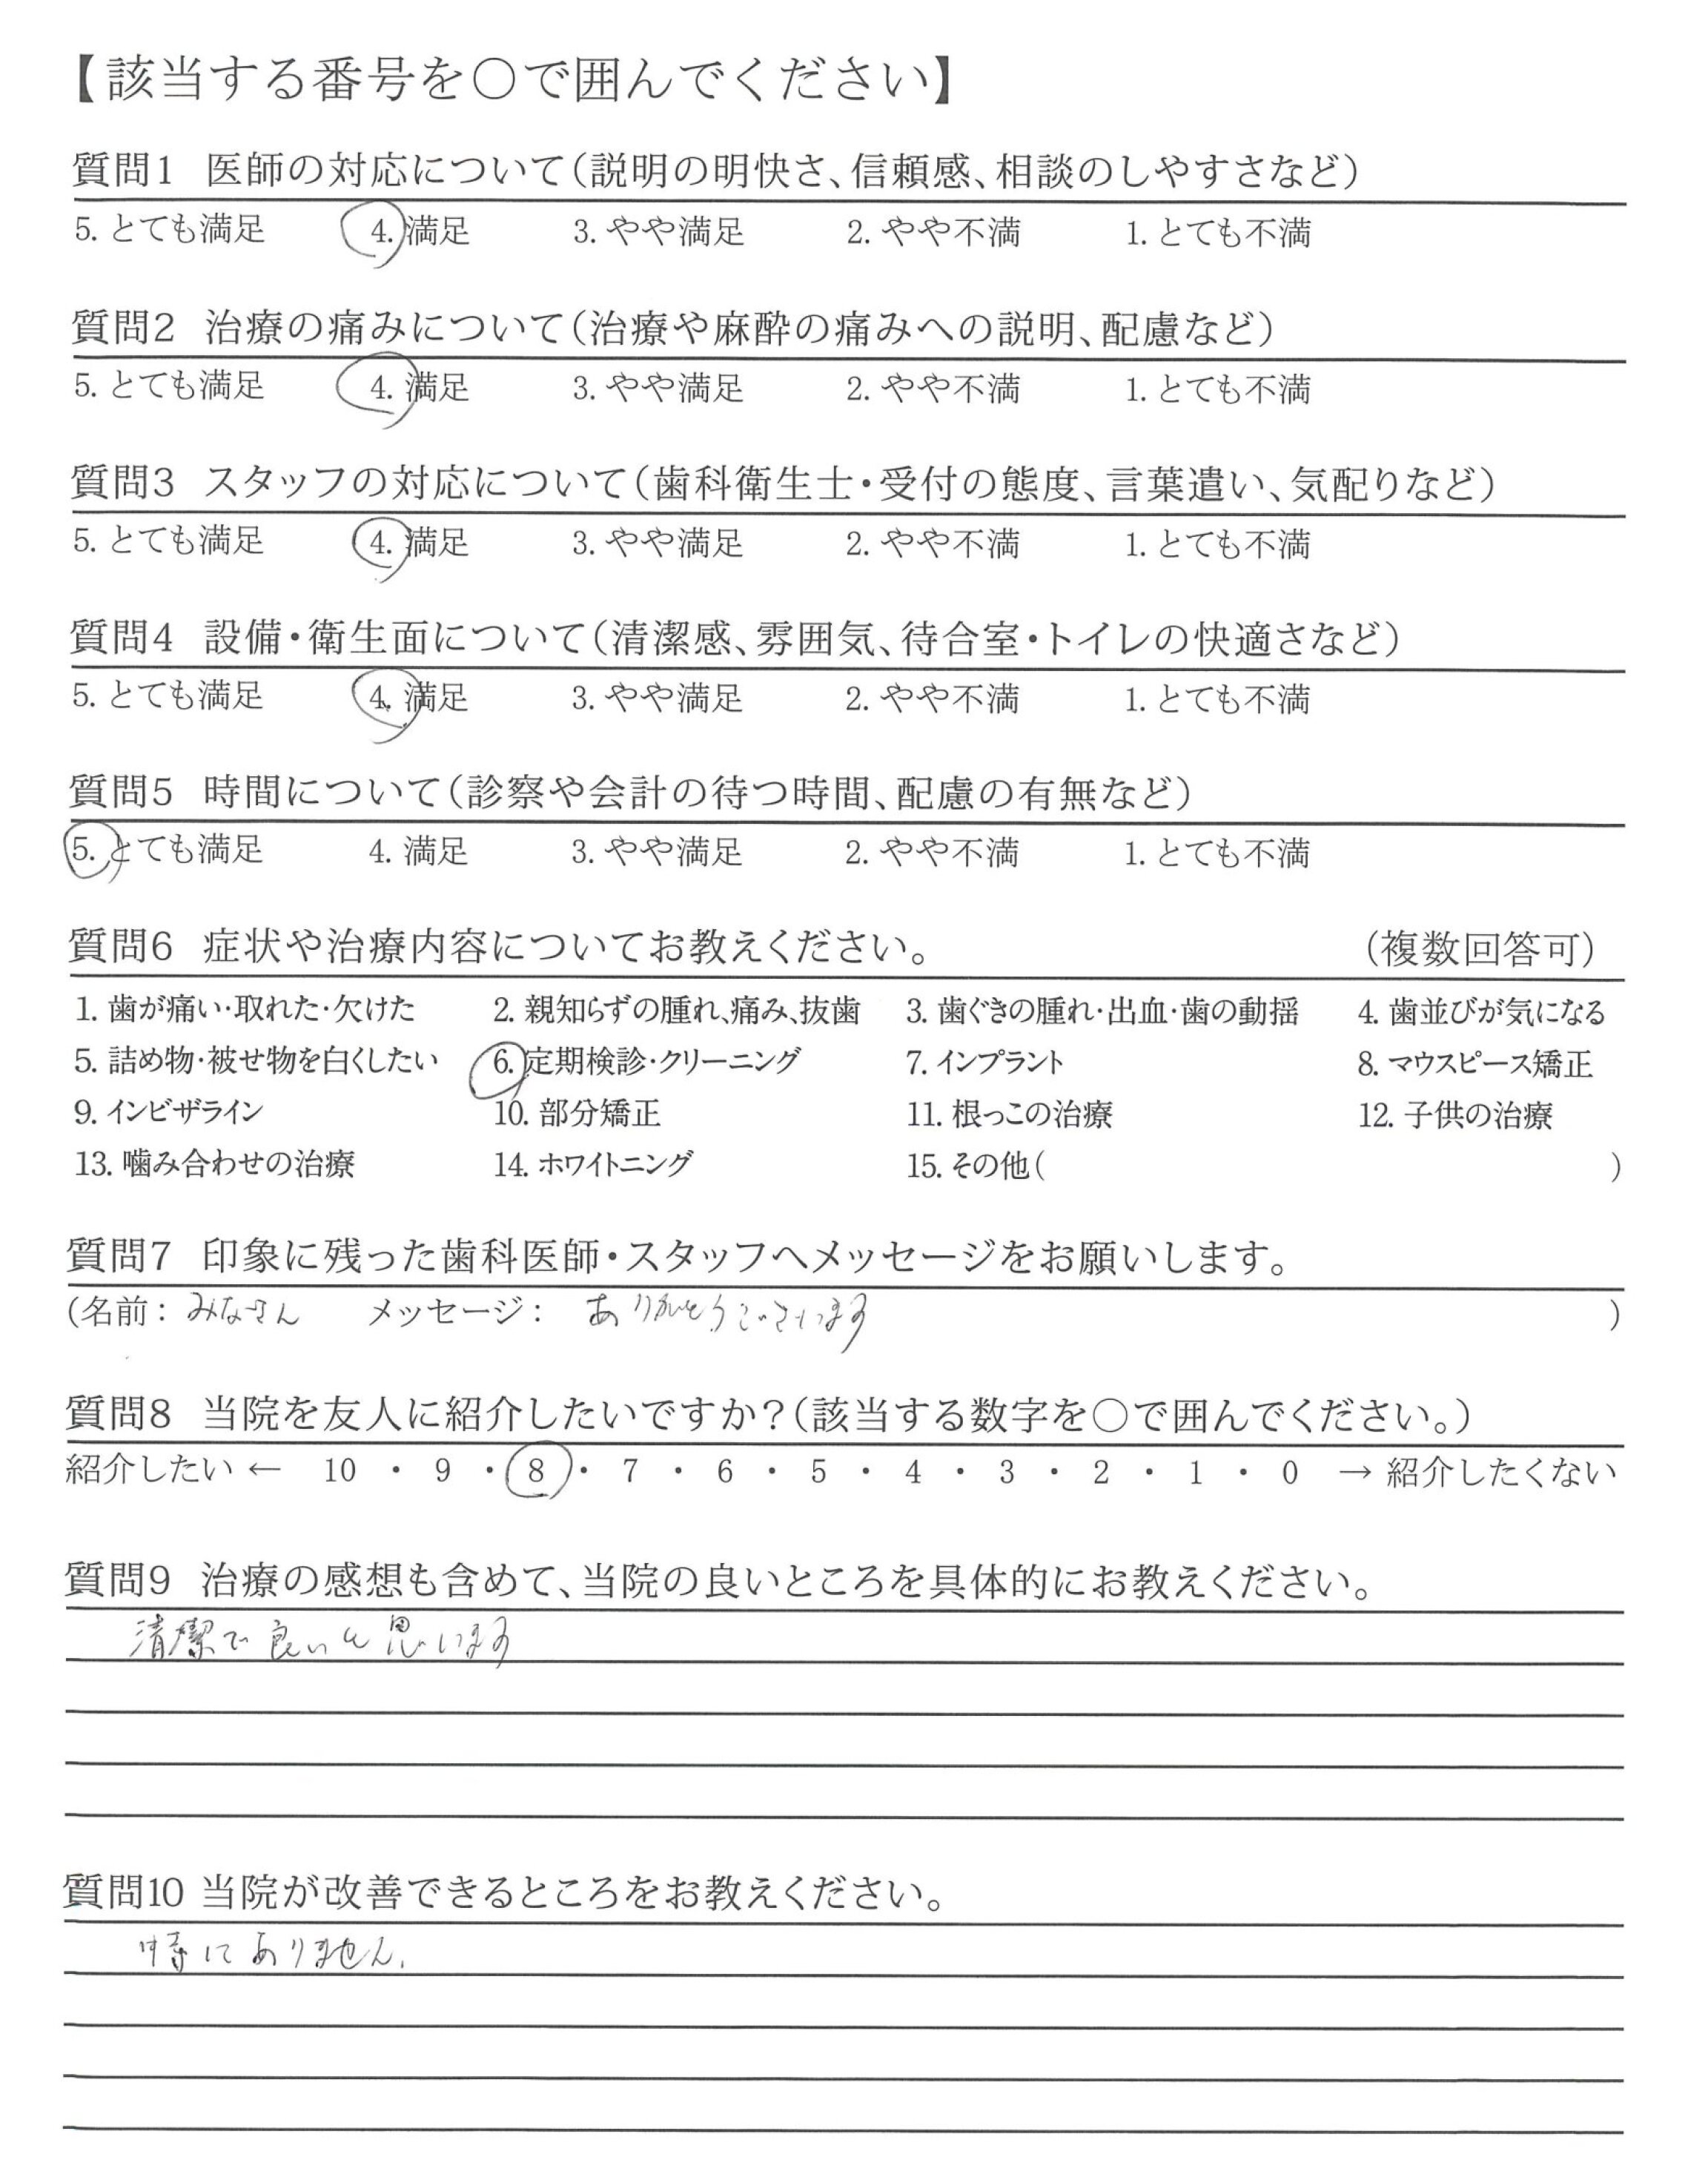 【該当する番号を○で囲んでください】
質問1 医師の対応について(説明の明快さ、信頼感、相談のしやすさなど)
5. とても満足 4. 満足 3. やや満足 2. やや不満 1. とても不満
質問2 治療の痛みについて(治療や麻酔の痛みへの説明、配慮など)
5. とても満足 4. 満足 3. やや満足 2. やや不満 1. とても不満
質問3 スタッフの対応について(歯科衛生士・受付の態度、言葉遣い、気配りなど)
5. とても満足 4. 満足 3. やや満足 2. やや不満 1. とても不満
質問4 設備・衛生面について(清潔感、雰囲気、待合室・トイレの快適さなど)
5. とても満足 4. 満足 3. やや満足 2. やや不満 1. とても不満
質問5 時間について(診察や会計の待つ時間、配慮の有無など)
5. とても満足 4. 満足 3. やや満足 2. やや不満 1. とても不満
質問6 症状や治療内容についてお教えください。 (複数回答可)
1. 歯が痛い・取れた・欠けた 2. 親知らずの腫れ、痛み、抜歯 3. 歯ぐきの腫れ・出血・歯の動揺 4. 歯並びが気になる
5. 詰め物・被せ物を白くしたい 6. 定期検診・クリーニング 7. インプラント 8. マウスピース矯正
9. インビザライン 10. 部分矯正 11. 根っこの治療 12. 子供の治療
13. 噛み合わせの治療 14. ホワイトニング 15. その他( )
質問7 印象に残った歯科医師・スタッフへメッセージをお願いします。
(名前: みなさん メッセージ: ありがとうございます )
質問8 当院を友人に紹介したいですか?(該当する数字を○で囲んでください。)
紹介したい ← 10 ・ 9 ・ 8 ・ 7 ・ 6 ・ 5 ・ 4 ・ 3 ・ 2 ・ 1 ・ 0 → 紹介したくない
質問9 治療の感想も含めて、当院の良いところを具体的にお教えください。
清潔で良いと思います
質問10 当院が改善できるところをお教えください。
特にありません.